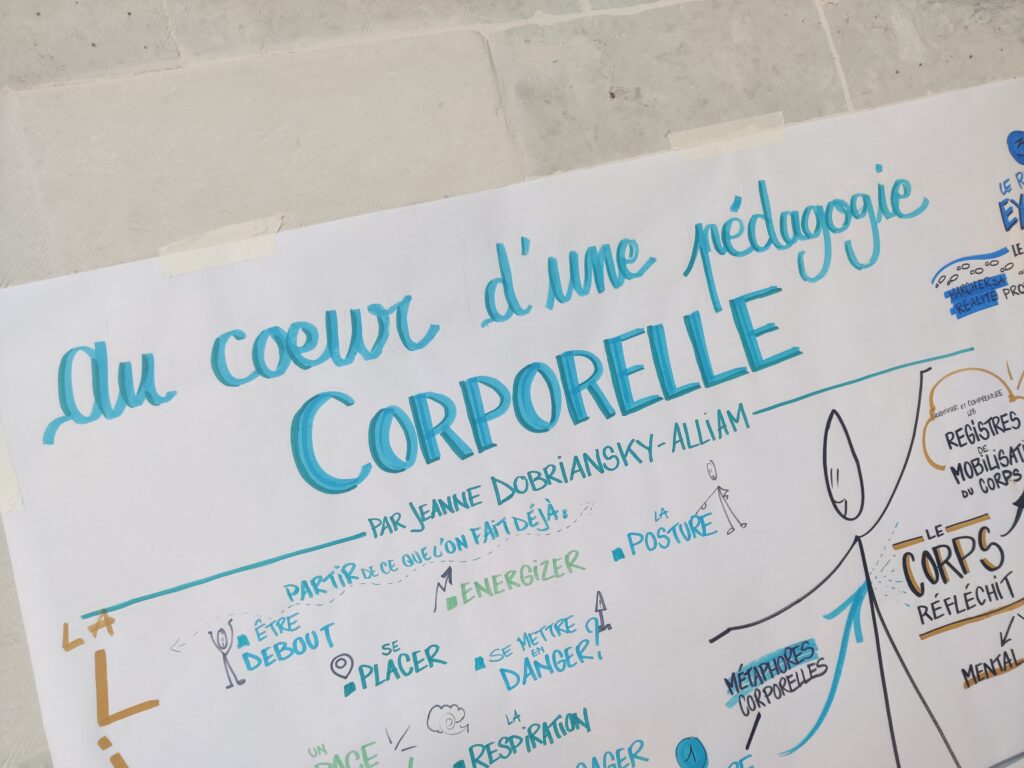 Au coeur d'une pédagogie
CORPORELLE
PAR JEANNE DOBRIANSKY-ALLIAM
PARTIR DE CE QUE L'ON FAIT DÉJÀ.
ÊTRE
DEBOUT
SE
PLACER
ENERGIZER
SE METTRE
EN
DANGER?
LA
POSTURE
UN
LA
RESPIRATION
1
MÉTAPHORES
CORPORELLES
LE
MARCHER SA
RÉALITÉ
IDENTIFIER ET COMPRENDRE
LES
REGISTRES
DE
MOBILISATI
DU CORPS
LE
CORPS
RÉFLÉCHIT
MENTAL
LA